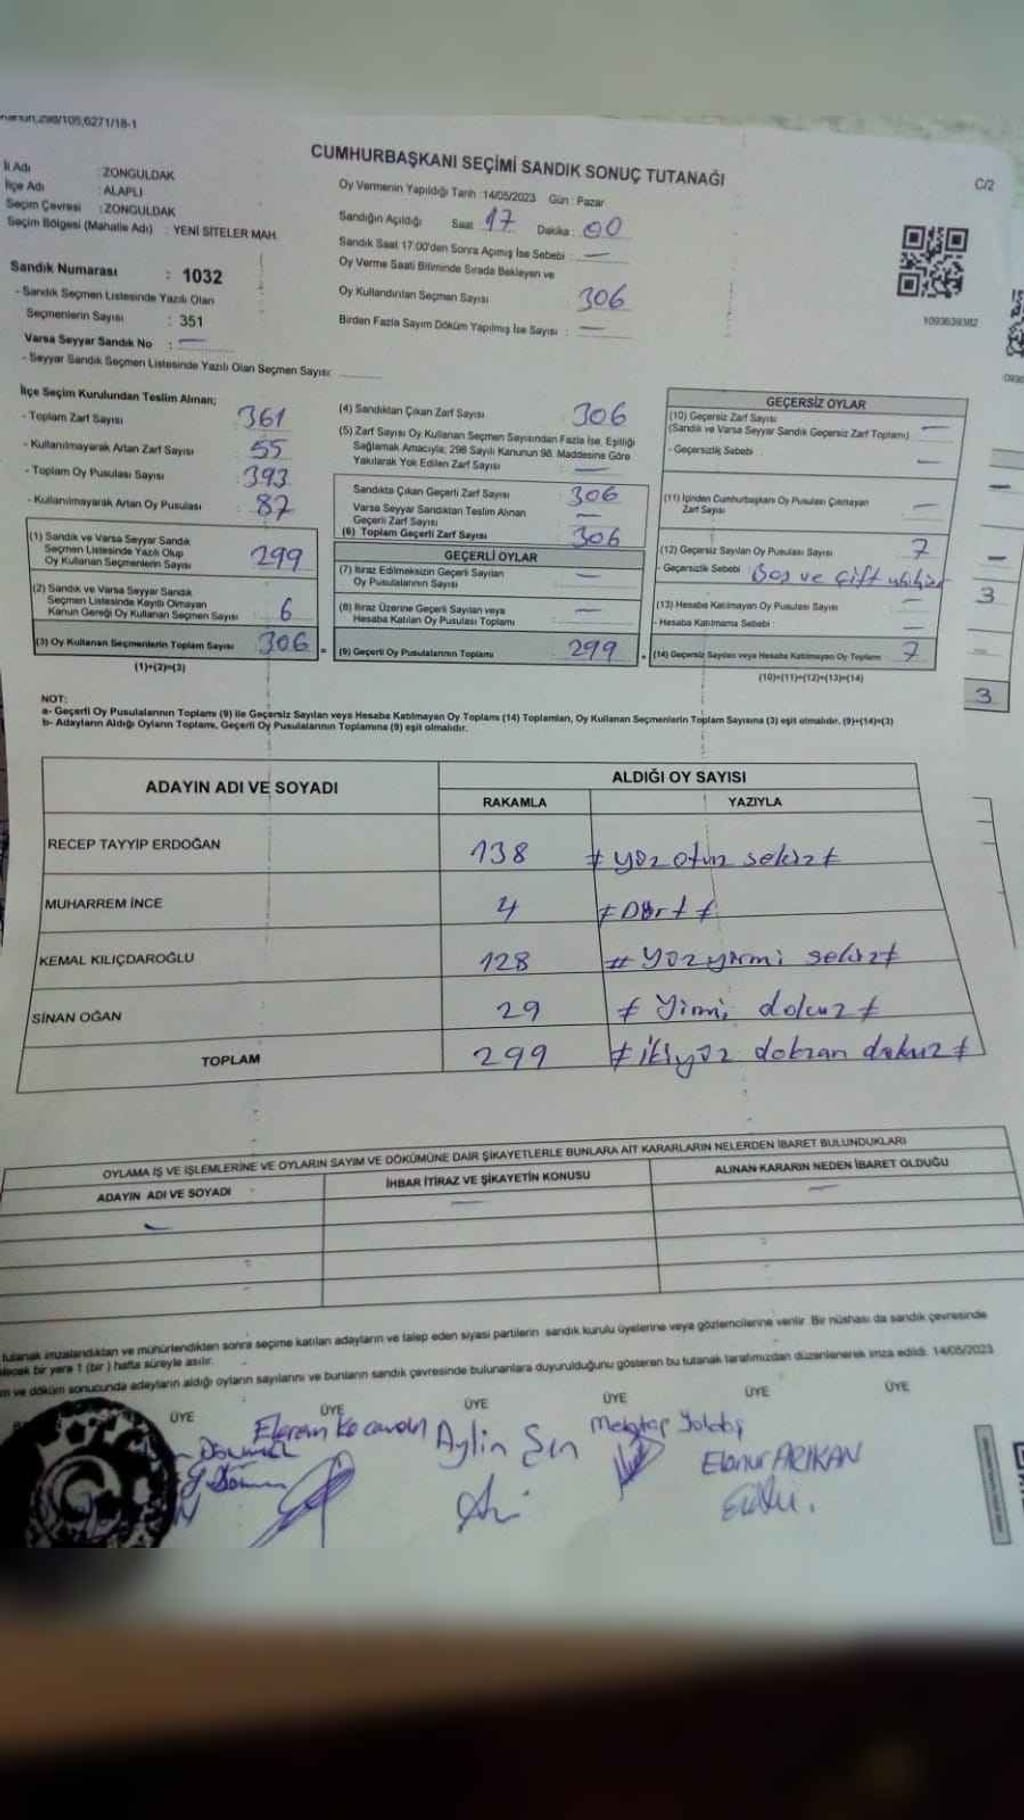 CUMHURBAŞKANI SEÇİMİ SANDIK SONUÇ TUTANAĞI
C/2
İl Adı : ZONGULDAK
İlçe Adı : ALAPLI
Seçim Çevresi : ZONGULDAK
Seçim Bölgesi (Mahalle Adı) : YENİ SİTELER MAH.
Sandık Numarası : 1032
- Sandık Seçmen Listesinde Yazılı Olan
Seçmenlerin Sayısı : 351
Varsa Seyyar Sandık No : —
- Seyyar Sandık Seçmen Listesinde Yazılı Olan Seçmen Sayısı:
Oy Vermenin Yapıldığı Tarih : 14/05/2023 Gün : Pazar
Sandığın Açıldığı Saat 17 Dakika : 00
Sandık Saat 17:00'den Sonra Açılmış İse Sebebi : —
Oy Verme Saati Bitiminde Sırada Bekleyen ve
Oy Kullandırılan Seçmen Sayısı 306
Birden Fazla Sayım Döküm Yapılmış İse Sayısı : —
İlçe Seçim Kurulundan Teslim Alınan;
- Toplam Zarf Sayısı 361
- Kullanılmayarak Artan Zarf Sayısı 55
- Toplam Oy Pusulası Sayısı 393
- Kullanılmayarak Artan Oy Pusulası 87
(1) Sandık ve Varsa Seyyar Sandık
Seçmen Listesinde Yazılı Olup
Oy Kullanan Seçmenlerin Sayısı 299
(2) Sandık ve Varsa Seyyar Sandık
Seçmen Listesinde Kayıtlı Olmayan
Kanun Gereği Oy Kullanan Seçmen Sayısı 6
(3) Oy Kullanan Seçmenlerin Toplam Sayısı 306 =
(1)+(2)=(3)
(4) Sandıktan Çıkan Zarf Sayısı 306
(5) Zarf Sayısı Oy Kullanan Seçmen Sayısından Fazla İse, Eşitliği
Sağlamak Amacıyla; 298 Sayılı Kanunun 98. Maddesine Göre
Yakılarak Yok Edilen Zarf Sayısı —
Sandıkta Çıkan Geçerli Zarf Sayısı 306
Varsa Seyyar Sandıktan Teslim Alınan
Geçerli Zarf Sayısı —
(6) Toplam Geçerli Zarf Sayısı 306
GEÇERLİ OYLAR
(7) İtiraz Edilmeksizin Geçerli Sayılan
Oy Pusulalarının Sayısı —
(8) İtiraz Üzerine Geçerli Sayılan veya
Hesaba Katılan Oy Pusulası Toplamı —
(9) Geçerli Oy Pusulalarının Toplamı 299
GEÇERSİZ OYLAR
(10) Geçersiz Zarf Sayısı
(Sandık ve Varsa Seyyar Sandık Geçersiz Zarf Toplamı) —
- Geçersizlik Sebebi : —
(11) İçinden Cumhurbaşkanı Oy Pusulası Çıkmayan
Zarf Sayısı —
(12) Geçersiz Sayılan Oy Pusulası Sayısı 7
- Geçersizlik Sebebi : Boş ve çift
(13) Hesaba Katılmayan Oy Pusula Sayısı —
- Hesaba Katılmama Sebebi : —
(14) Geçersiz Sayılan veya Hesaba Katılmayan Oy Toplamı 7
(10)+(11)+(12)+(13)=(14)
3
3
NOT:
a- Geçerli Oy Pusulalarının Toplamı (9) ile Geçersiz Sayılan veya Hesaba Katılmayan Oy Toplamı (14) Toplamları, Oy Kullanan Seçmenlerin Toplam Sayısına (3) eşit olmalıdır. (9)+(14)=(3)
b- Adayların Aldığı Oyların Toplamı, Geçerli Oy Pusulalarının Toplamına (9) eşit olmalıdır.
ADAYIN ADI VE SOYADI ALDIĞI OY SAYISI
RAKAMLA YAZIYLA
RECEP TAYYİP ERDOĞAN 138 # yüz otuz sekiz #
MUHARREM İNCE 4 # Dört #
KEMAL KILIÇDAROĞLU 128 # yüzyirmi sekiz #
SİNAN OĞAN 29 # Yirmi dokuz #
TOPLAM 299 # ikiyüz doksan dokuz #
OYLAMA İŞ VE İŞLEMLERİNE VE OYLARIN SAYIM VE DÖKÜMÜNE DAİR ŞİKAYETLERLE BUNLARA AİT KARARLARIN NELERDEN İBARET BULUNDUKLARI
ADAYIN ADI VE SOYADI İHBAR İTİRAZ VE ŞİKAYETİN KONUSU ALINAN KARARIN NEDEN İBARET OLDUĞU
tutanak imzalandıktan ve mühürlendikten sonra seçime katılan adayların ve talep eden siyasi partilerin sandık kurulu üyelerine veya gözlemcilerine verilir. Bir nüshası da sandık çevresinde
bir yere 1 (bir) hafta süreyle asılır.
m ve döküm sonucunda adayların aldığı oyların sayılarını ve bunların sandık çevresinde bulunanlara duyurulduğunu gösteren bu tutanak tarafımızdan düzenlenerek imza edildi. 14/05/2023
ÜYE ÜYE ÜYE ÜYE ÜYE ÜYE
Aylin Şen
Elanur ARIKAN